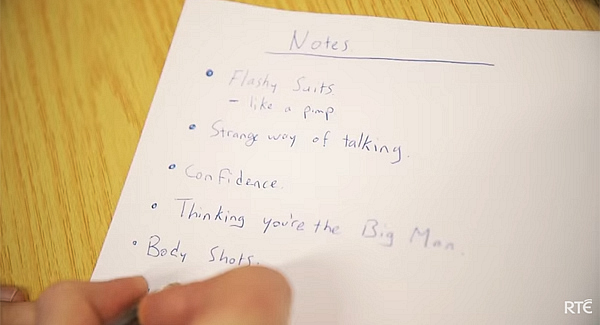 Notes
• Flashy Suits
- like a pimp
• Strange way of talking.
• Confidence.
• Thinking you're the Big Man.
• Body Shots.
RTÉ